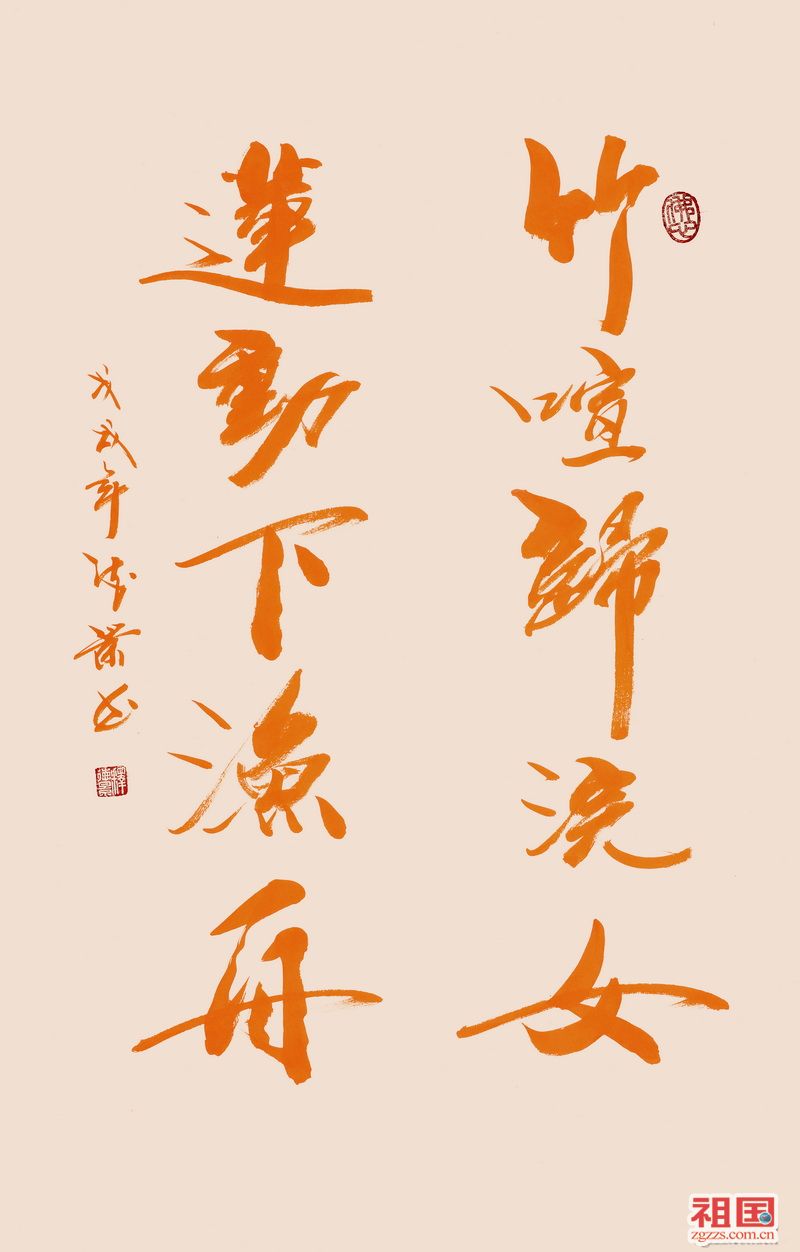 竹喧歸浣女
蓮動下漁舟
戊戌年
書
祖国
zgzzs.com.cn